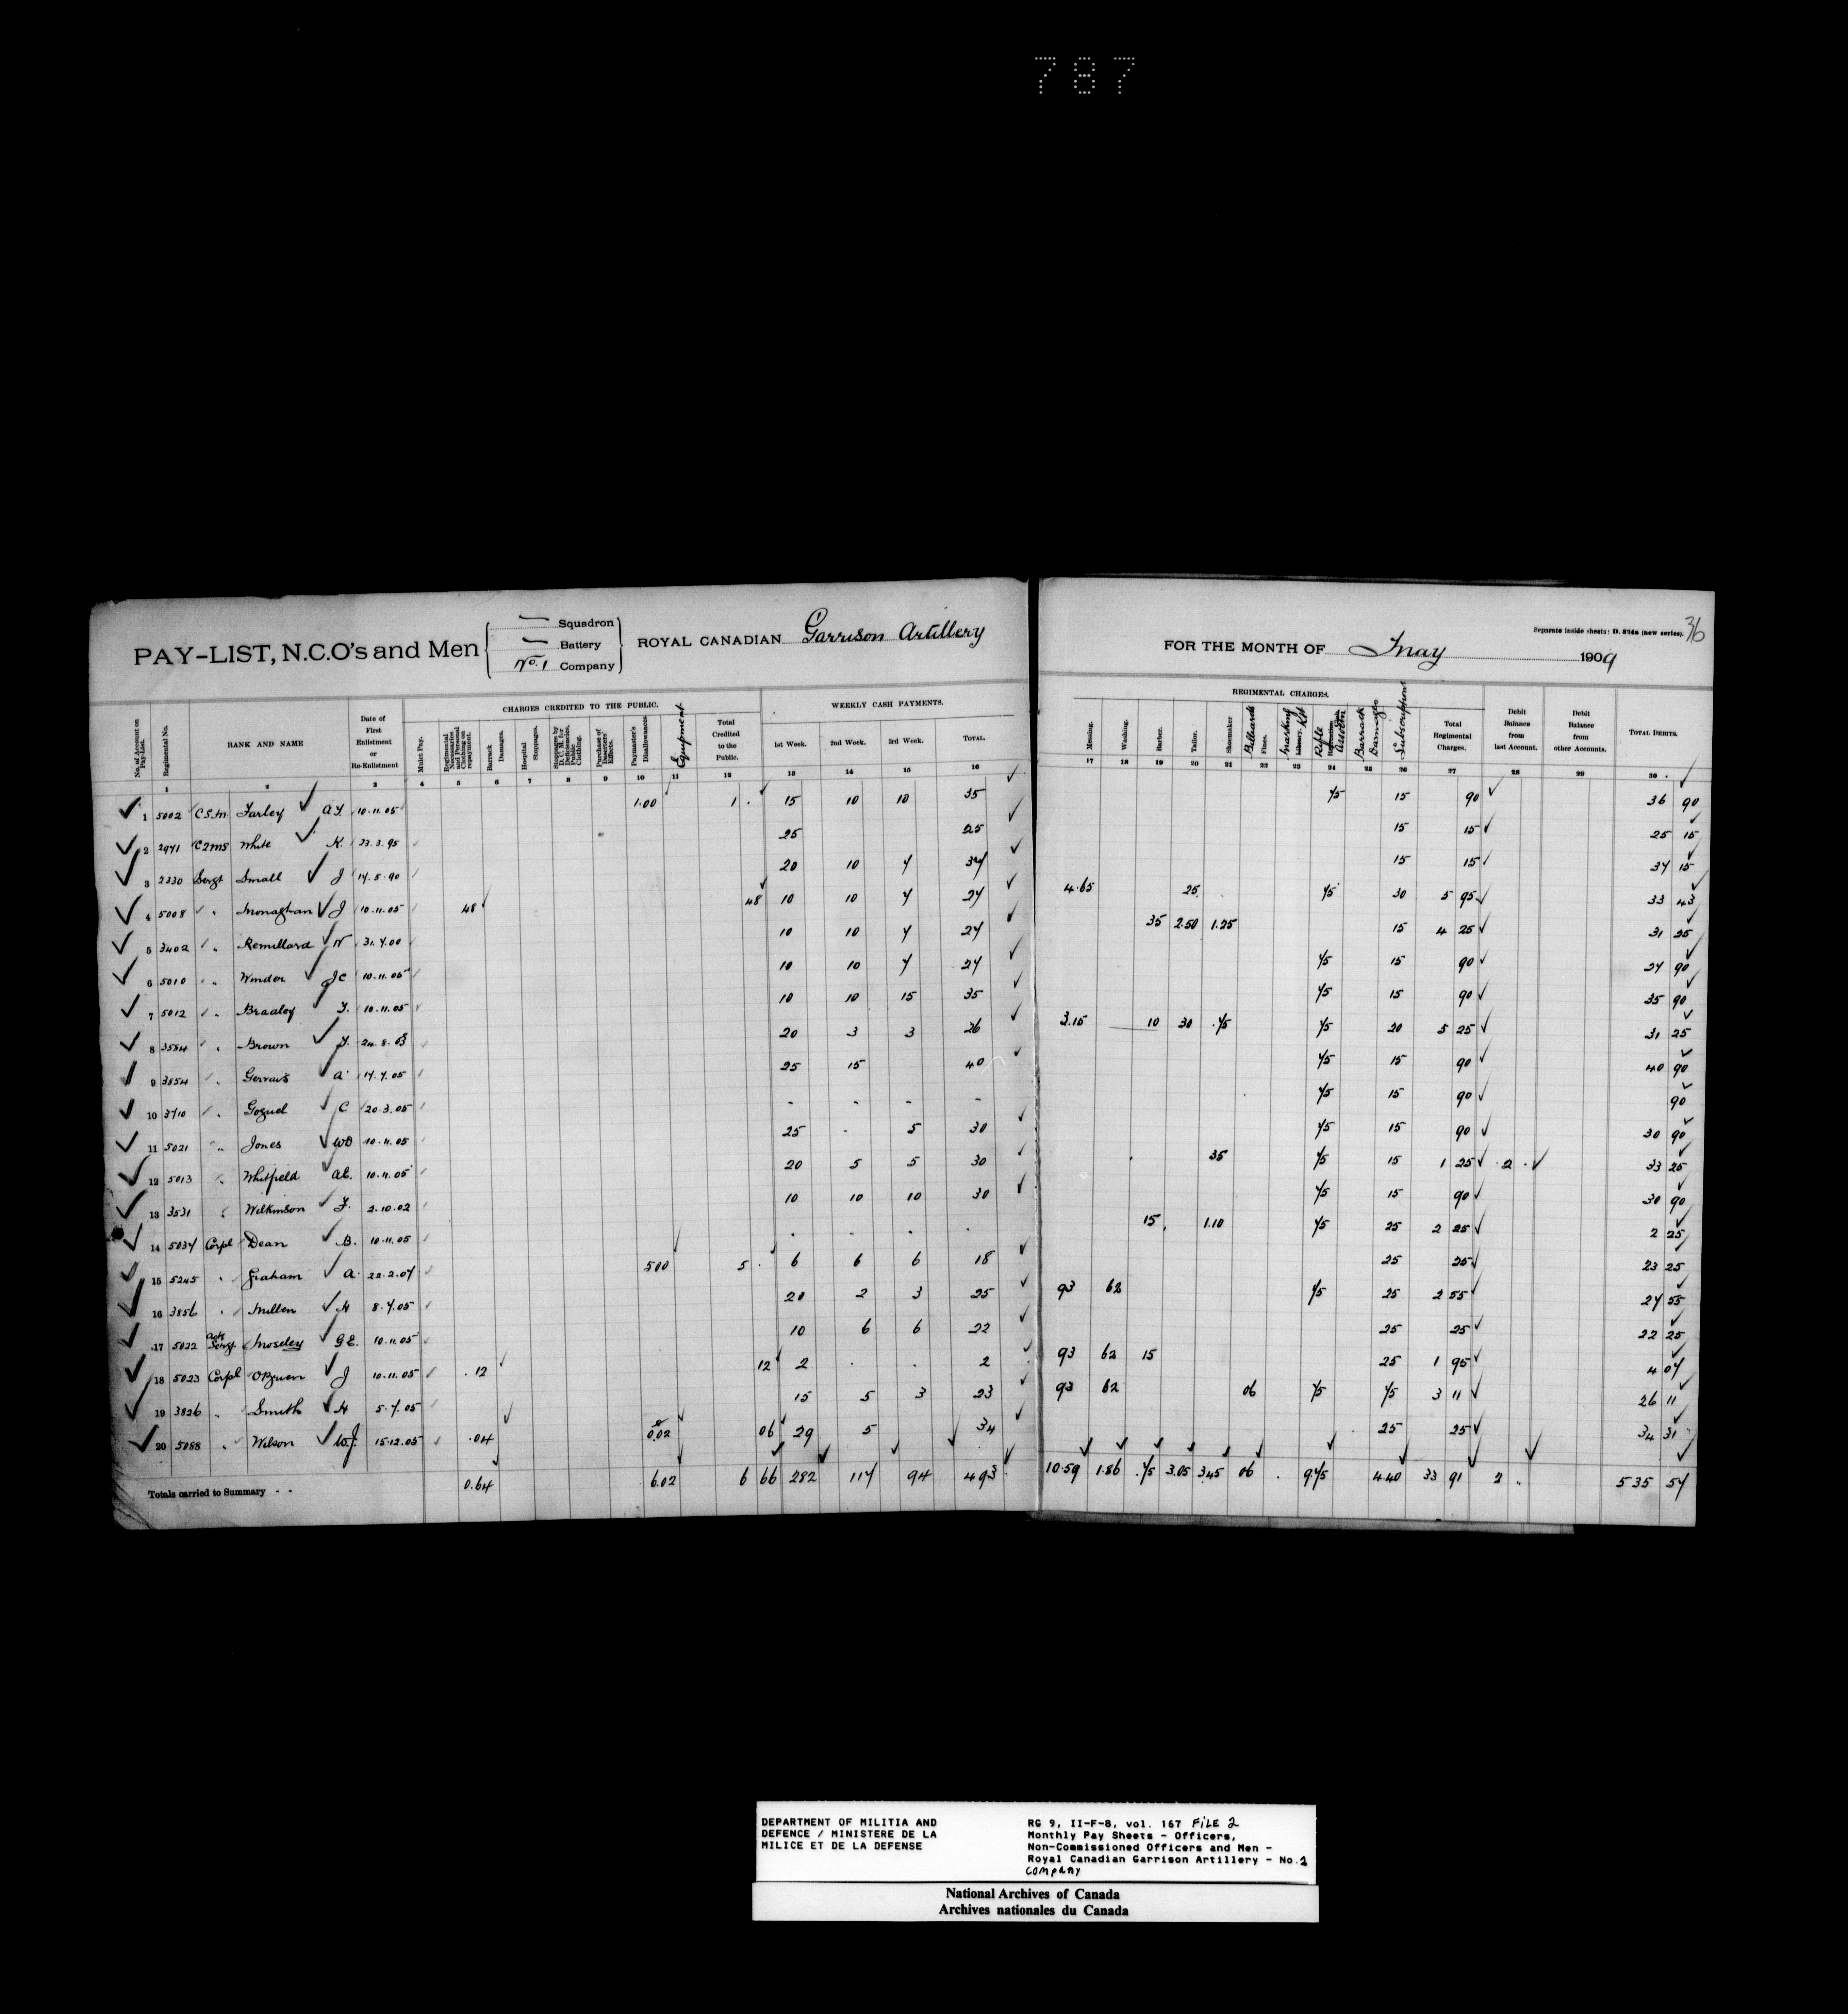 787
Separate inside sheets: D. 824a (new series). 36
PAY-LIST, N.C.O's and Men — Squadron — Battery No. 1 Company ROYAL CANADIAN Garrison Artillery FOR THE MONTH OF May 1909
CHARGES CREDITED TO THE PUBLIC. WEEKLY CASH PAYMENTS. REGIMENTAL CHARGES.
No. of Account on Pay-List. Regimental No. RANK AND NAME Date of First Enlistment or Re-Enlistment Mulct Pay. Regimental Necessaries and Personal Clothing on repayment. Barrack Damages. Hospital Stoppages. Stoppages by D.C.M. for Deficiencies, Public Clothing. Purchase of Deserters' Effects. Paymaster's Disallowances Equipment Total Credited to the Public. 1st Week. 2nd Week. 3rd Week. TOTAL. Messing. Washing. Barber. Tailor. Shoemaker Billiards Fines. Marking Kit Library. Rifle Assoctn Barrack Damages Subscriptions Total Regimental Charges. Debit Balance from last Account. Debit Balance from other Accounts. TOTAL DEBITS.
1 2 3 4 5 6 7 8 9 10 11 12 13 14 15 16 17 18 19 20 21 22 23 24 25 26 27 28 29 30
1 5002 C.S.M. Farley A.F. 10.11.05 1.00 1 . 15 10 10 35 75 15 90 36 90
2 2971 CQMS White K. 23.3.95 25 25 15 15 25 15
3 2330 Sergt Small J 17.5.90 20 10 7 37 15 15 37 15
4 5008 " Monaghan J 10.11.05 48 48 10 10 7 27 4.65 25 75 30 5 95 33 43
5 3402 " Remillard N 31.7.00 10 10 7 27 35 2.50 1.25 15 4 25 31 25
6 5010 " Winder JC 10.11.05 10 10 7 27 75 15 90 27 90
7 5012 " Bradley F. 10.11.05 10 10 15 35 75 15 90 35 90
8 3584 " Brown F. 24.8.03 20 3 3 26 3.15 10 30 .75 75 20 5 25 31 25
9 3854 " Gervais A. 17.7.05 25 15 40 75 15 90 40 90
10 3710 " Goguel C 20.3.05 - - - - 75 15 90 90
11 5021 " Jones WD 10.11.05 25 . 5 30 75 15 90 30 90
12 5013 " Whitfield AE. 10.11.05 20 5 5 30 35 75 15 1 25 2 . 33 25
13 3531 " Wilkinson F. 2.10.02 10 10 10 30 75 15 90 30 90
14 5037 Corpl Dean B. 10.11.05 . . . . 15 1.10 75 25 2 25 2 25
15 5245 " Graham A. 22.2.07 5.00 5 . 6 6 6 18 25 25 23 25
16 3856 " Millen H 8.7.05 20 2 3 25 93 62 75 25 2 55 27 55
17 5022 Actg Sergt Moseley GE. 10.11.05 10 6 6 22 25 25 22 25
18 5023 Corpl O'Brien J 10.11.05 .12 12 2 . . 2 93 62 15 25 1 95 4 07
19 3826 " Smith H 5.7.05 15 5 3 23 93 62 06 75 75 3 11 26 11
20 5088 " Wilson W.J. 15.12.05 .04 0.02 06 29 5 34 25 25 34 31
Totals carried to Summary - - 0.64 6.02 6 66 282 117 94 493 10.59 1.86 .75 3.05 3.45 06 . 9.75 4.40 33 91 2 .. 535 57
DEPARTMENT OF MILITIA AND
DEFENCE / MINISTERE DE LA
MILICE ET DE LA DEFENSE
RG 9, II-F-8, vol. 167 FILE 2
Monthly Pay Sheets - Officers,
Non-Commissioned Officers and Men -
Royal Canadian Garrison Artillery - No.1
COMPANY
National Archives of Canada
Archives nationales du Canada